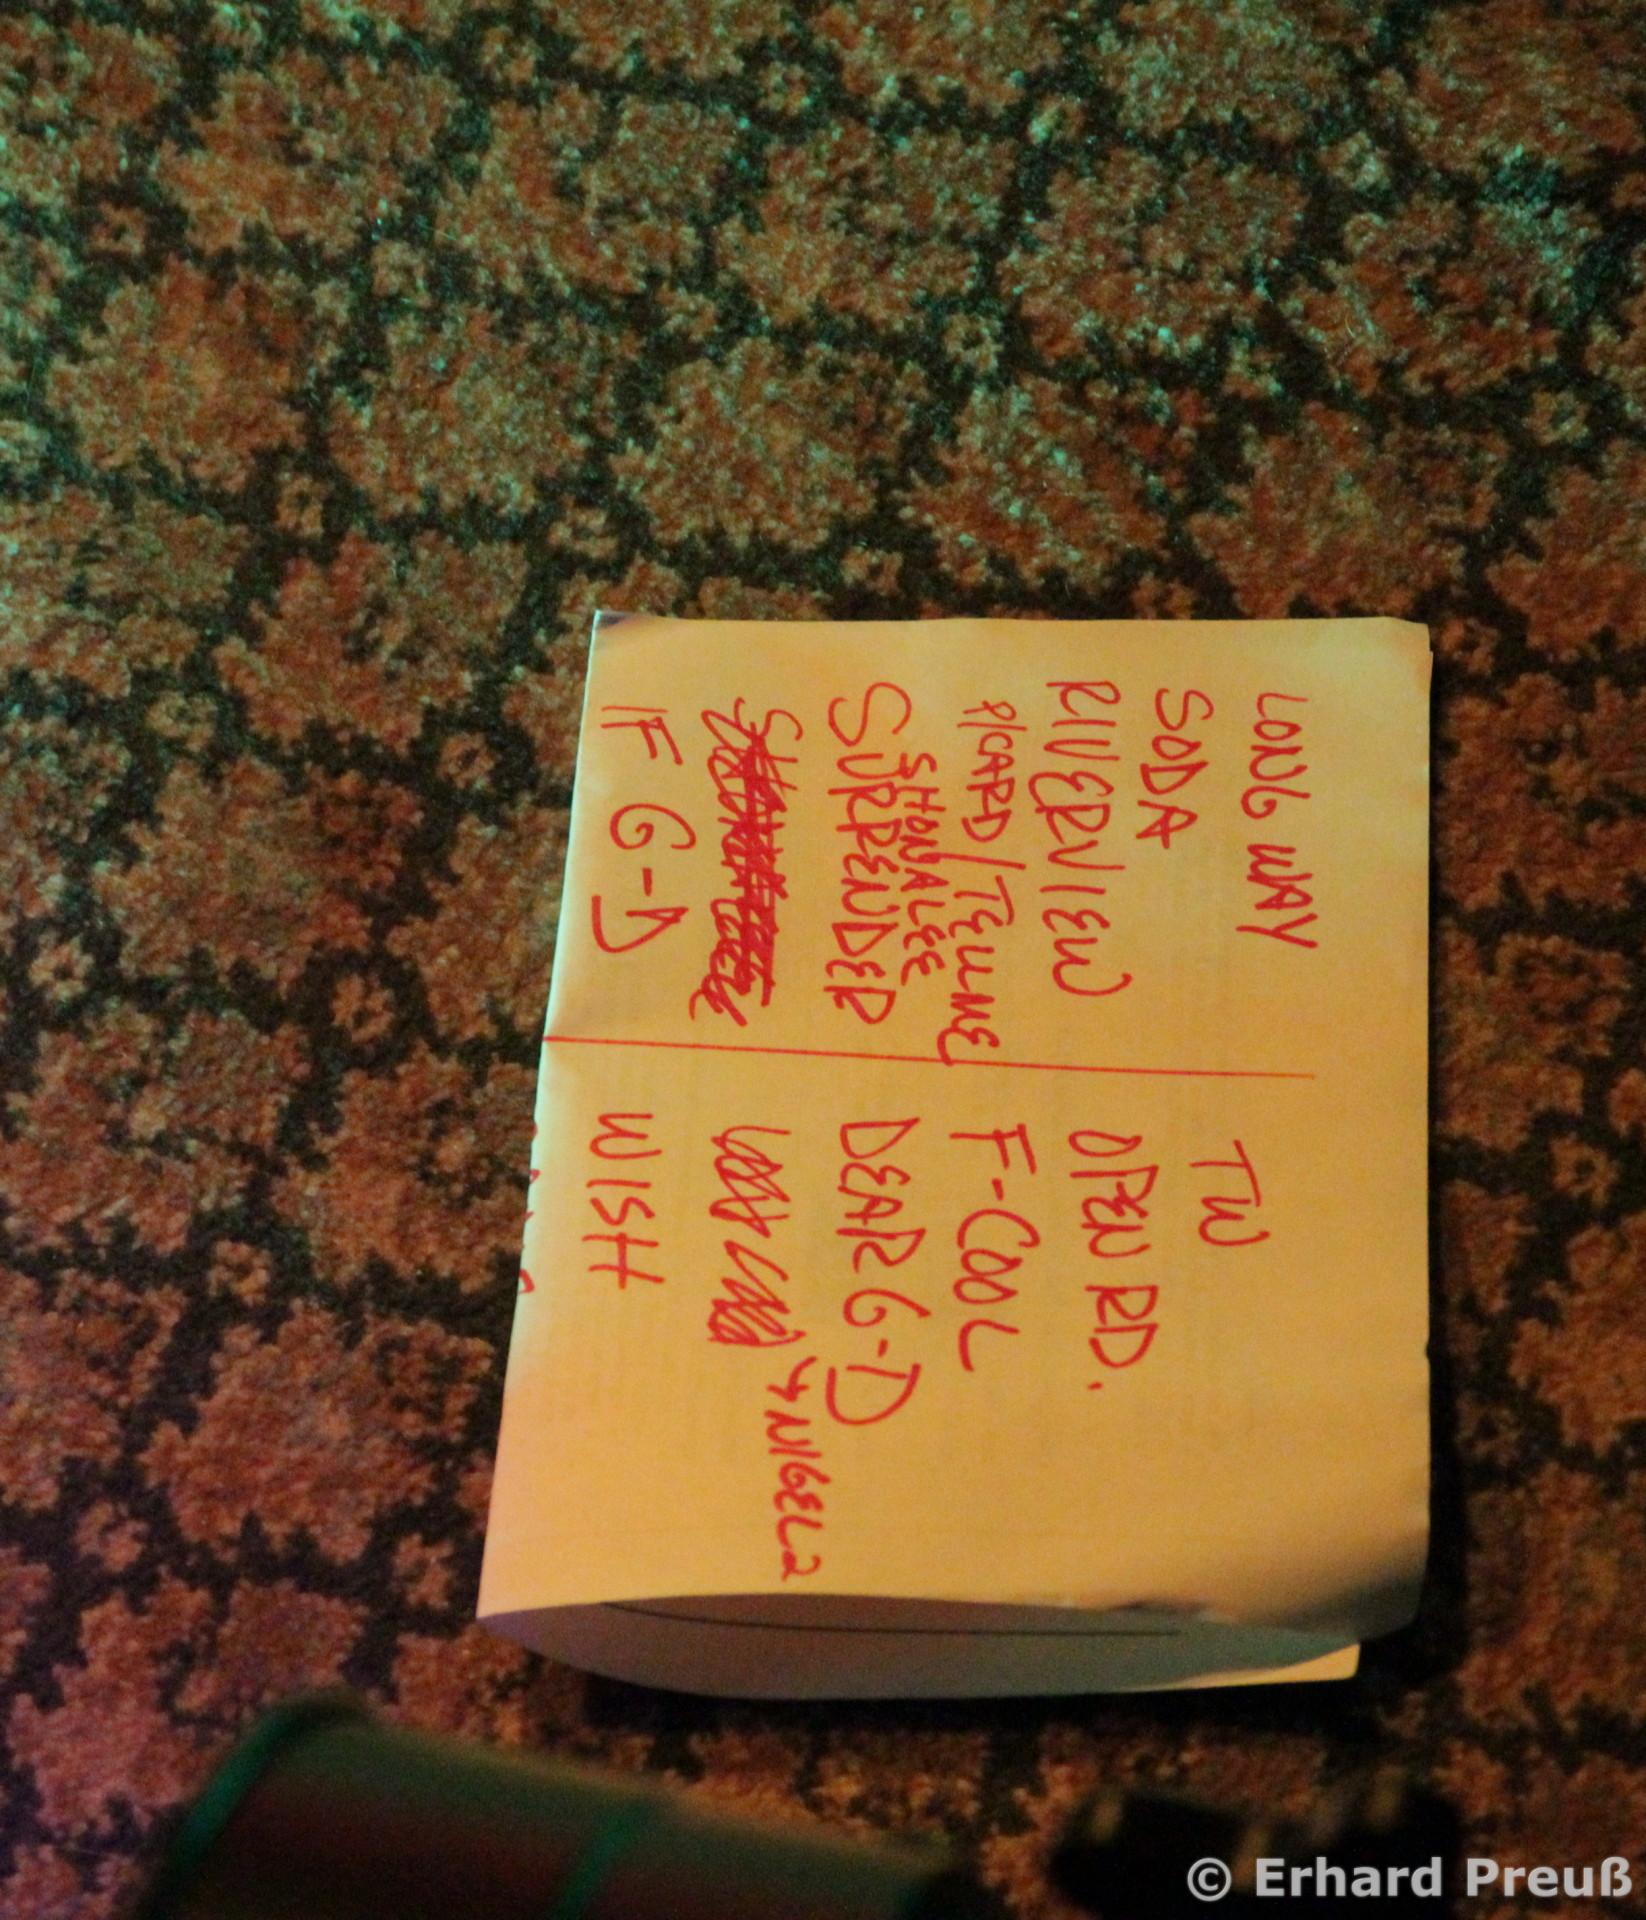 LONG WAY
SODA
RIVERVIEW
PICARD/TELLME
SHONALEE
SURRENDER
IF G-D
TW
OPEN RD.
F-COOL
DEAR G-D
NIGEL2
WISH
© Erhard Preuß